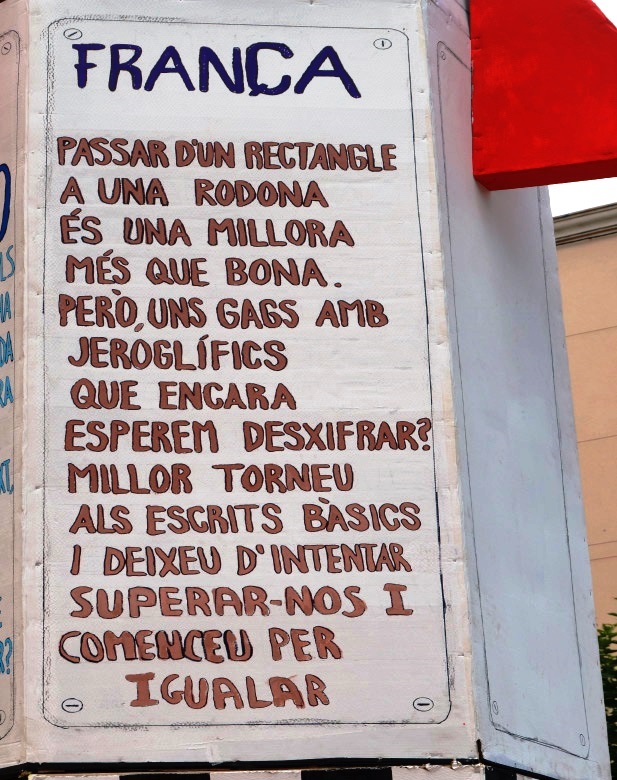 FRANÇA
PASSAR D'UN RECTANGLE
A UNA RODONA
ÉS UNA MILLORA
MÉS QUE BONA.
PERÒ, UNS GAGS AMB
JEROGLÍFICS
QUE ENCARA
ESPEREM DESXIFRAR?
MILLOR TORNEU
ALS ESCRITS BÀSICS
I DEIXEU D'INTENTAR
SUPERAR-NOS I
COMENCEU PER
IGUALAR